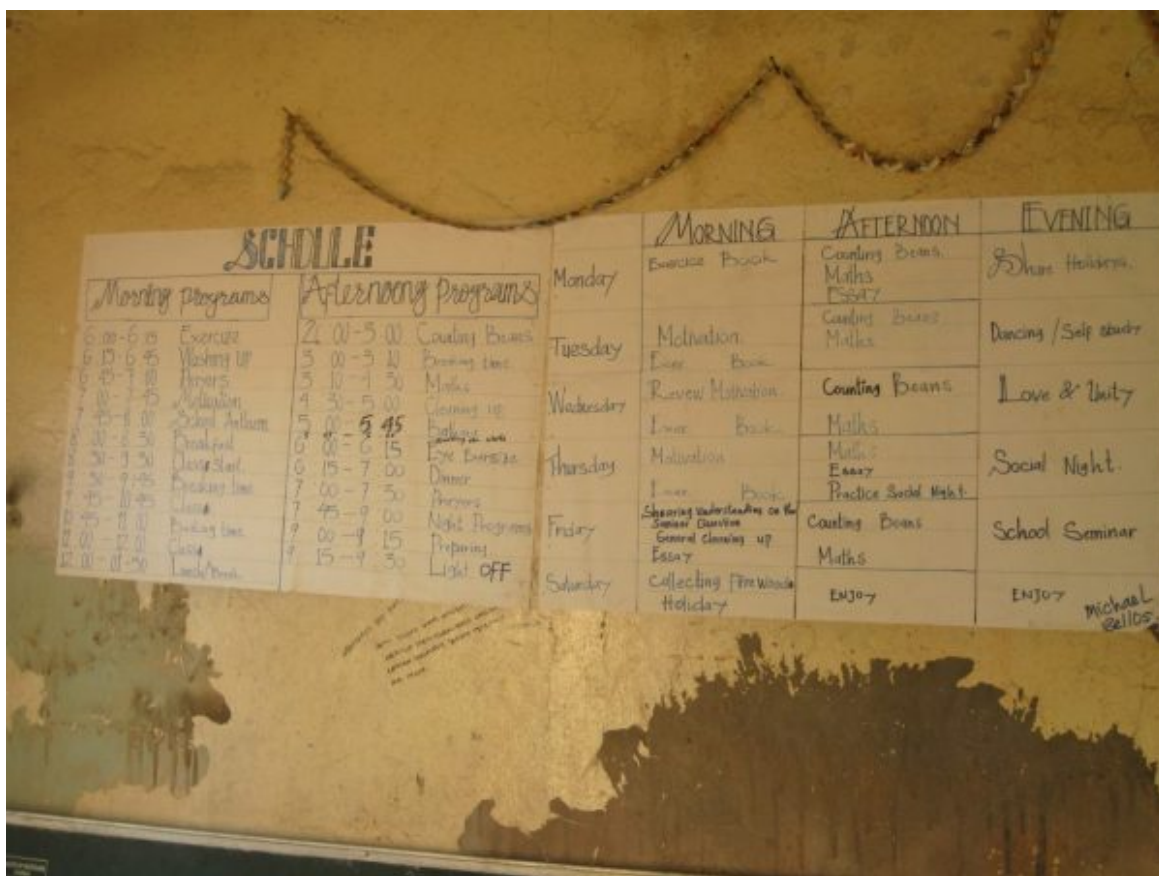 SCHDULE
Morning Programs
6 00 - 6 15 Exercise
6 15 - 6 45 Washing up
6 45 - 7 00 Prayers
7 00 - 7 45 Motivation
7 45 - 8 00 School Anthem
8 00 - 8 30 Breakfast
8 30 - 9 30 Class start
9 30 - 9 45 Breaking time
9 45 - 10 45 Class
10 45 - 11 00 Breaking time
11 00 - 12 00 Class
12 00 - 01-30 Lunch/Break
Afternoong Programs
2 00 - 3 00 Counting Beans
3 00 - 3 10 Breaking time
3 10 - 4 30 Maths
4 30 - 5 00 Cleaning up
5 00 - 5 45
6 00 - 6 15 Eye Exercise
6 15 - 7 00 Dinner
7 00 - 7 30 Prayers
7 45 - 9 00 Night Programs
9 00 - 9 15 Preparing
9 15 - 9 30 Light OFF
MORNING AFTERNOON EVENING
Monday
Exercise Book
Counting Beans.
Maths
ESSAY
Share
Tuesday
Motivation.
Book
Counting Beans
Maths
Dancing / Self study
Wednesday
Review Motivation.
Book
Counting Beans
Maths
Love & Unity
Thursday
Motivation
Book
Maths
Essay
Practice Social Night.
Social Night.
Friday
Understanding on the
Seminar Question
General Cleaning up
Essay
Counting Beans
Maths
School Seminar
Saturday
Collecting Fire Woods
Holiday
ENJOY
ENJOY
Michael
Bellos